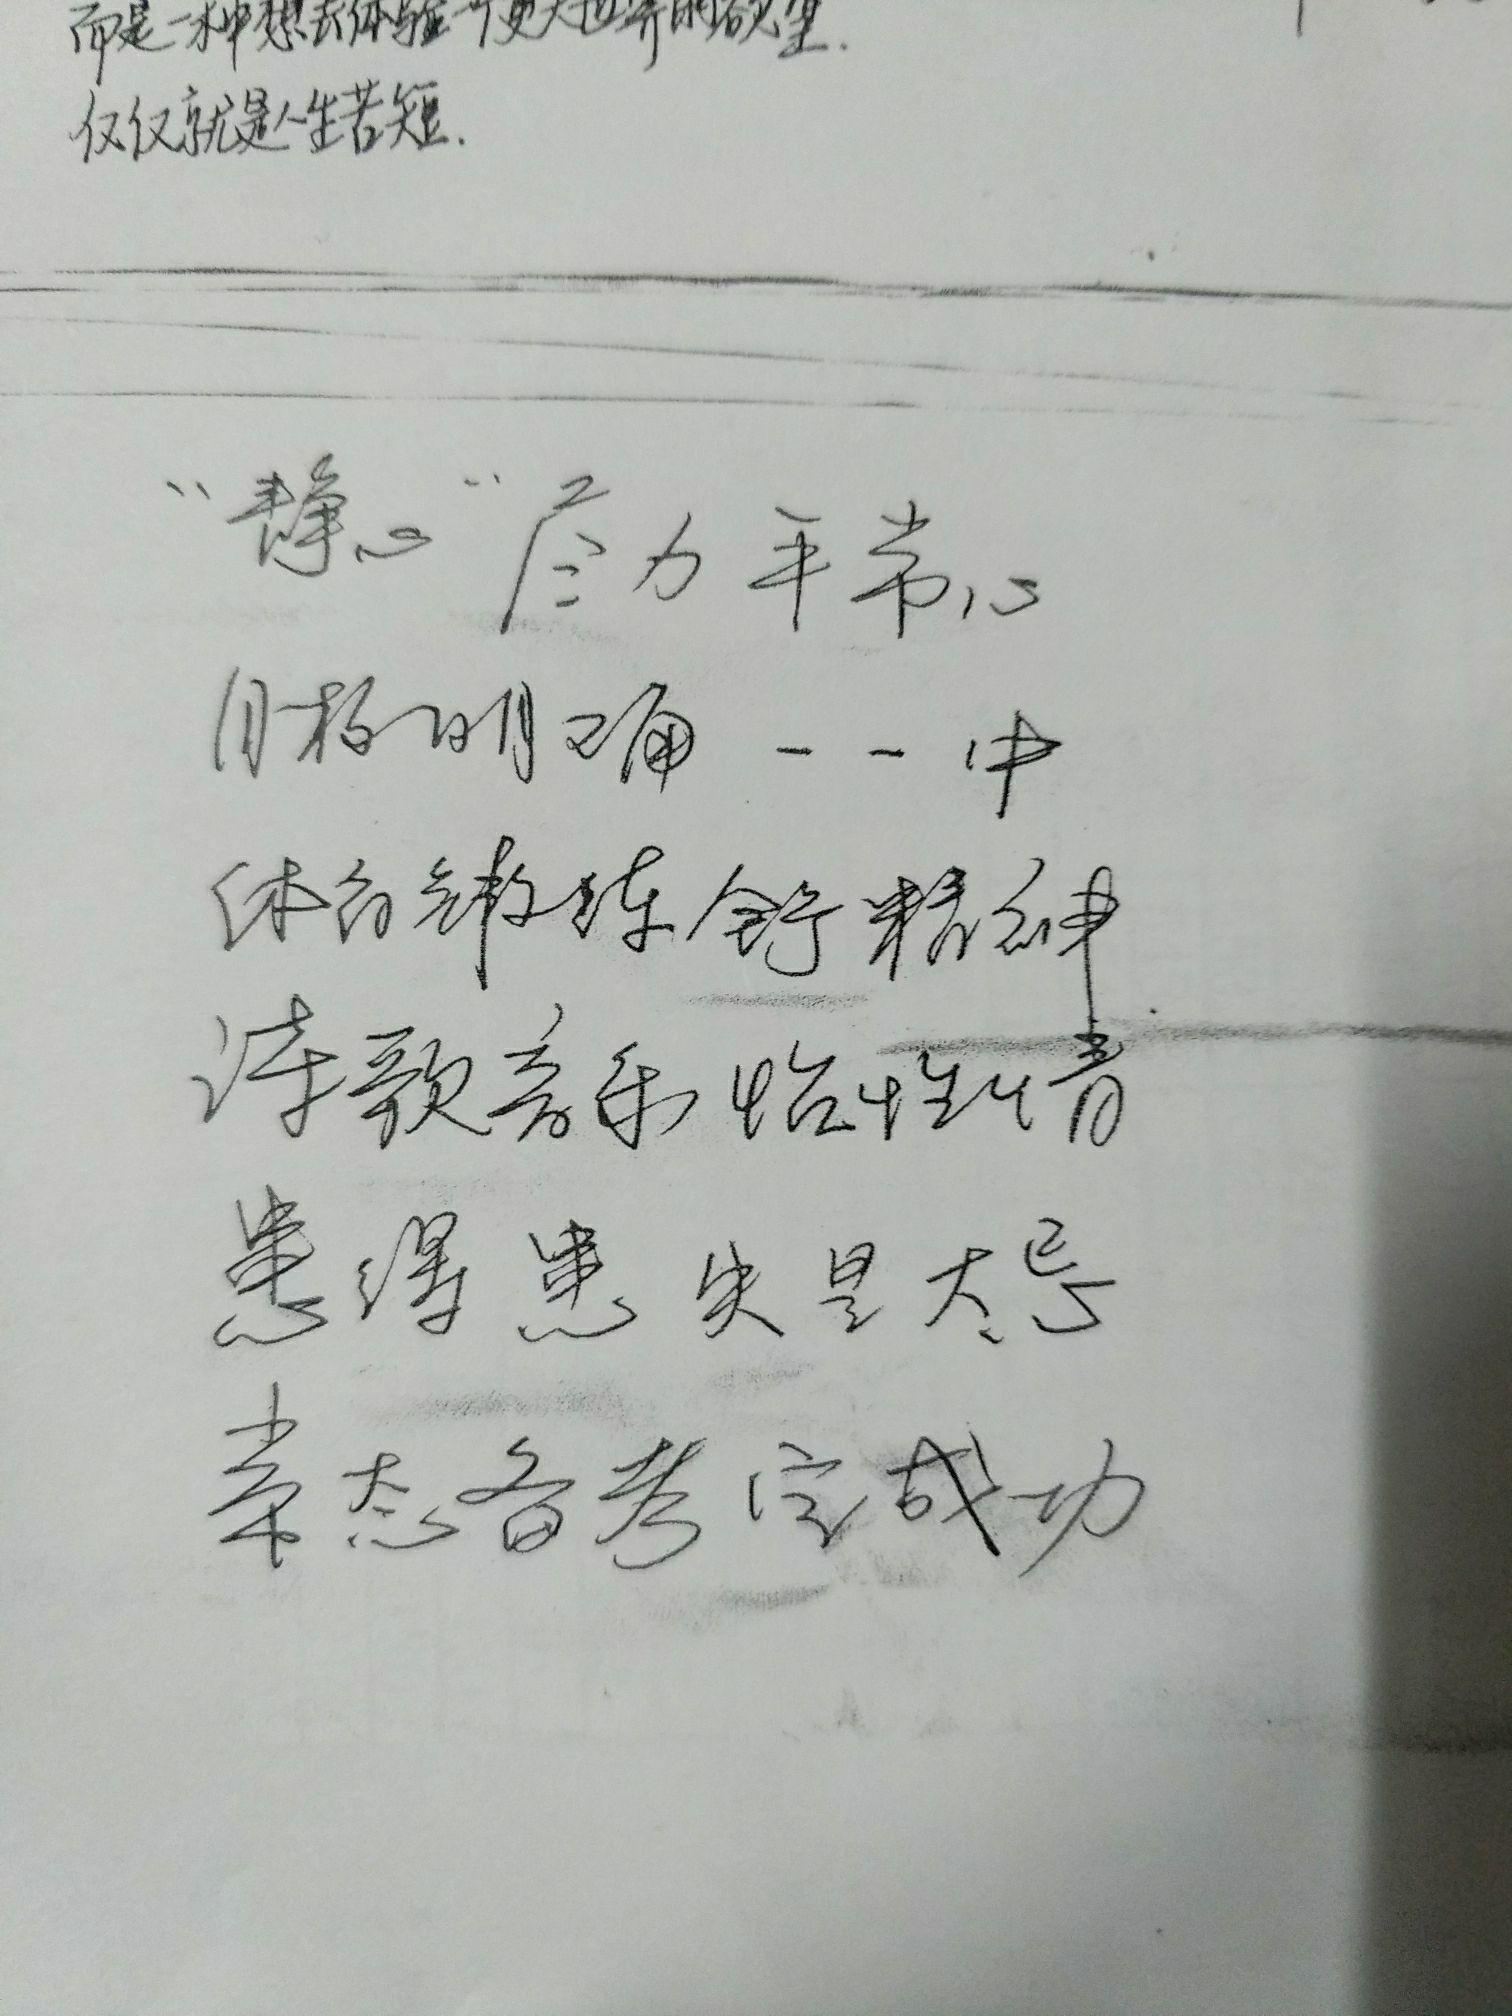 而是一种想去体验一个更大世界的欲望.
仅仅就是人生苦短.
“静心”尽力平常心
目标明确一一中
体育锻练舒精神
诗歌音乐怡性情
患得患失是大忌
常态备考定成功